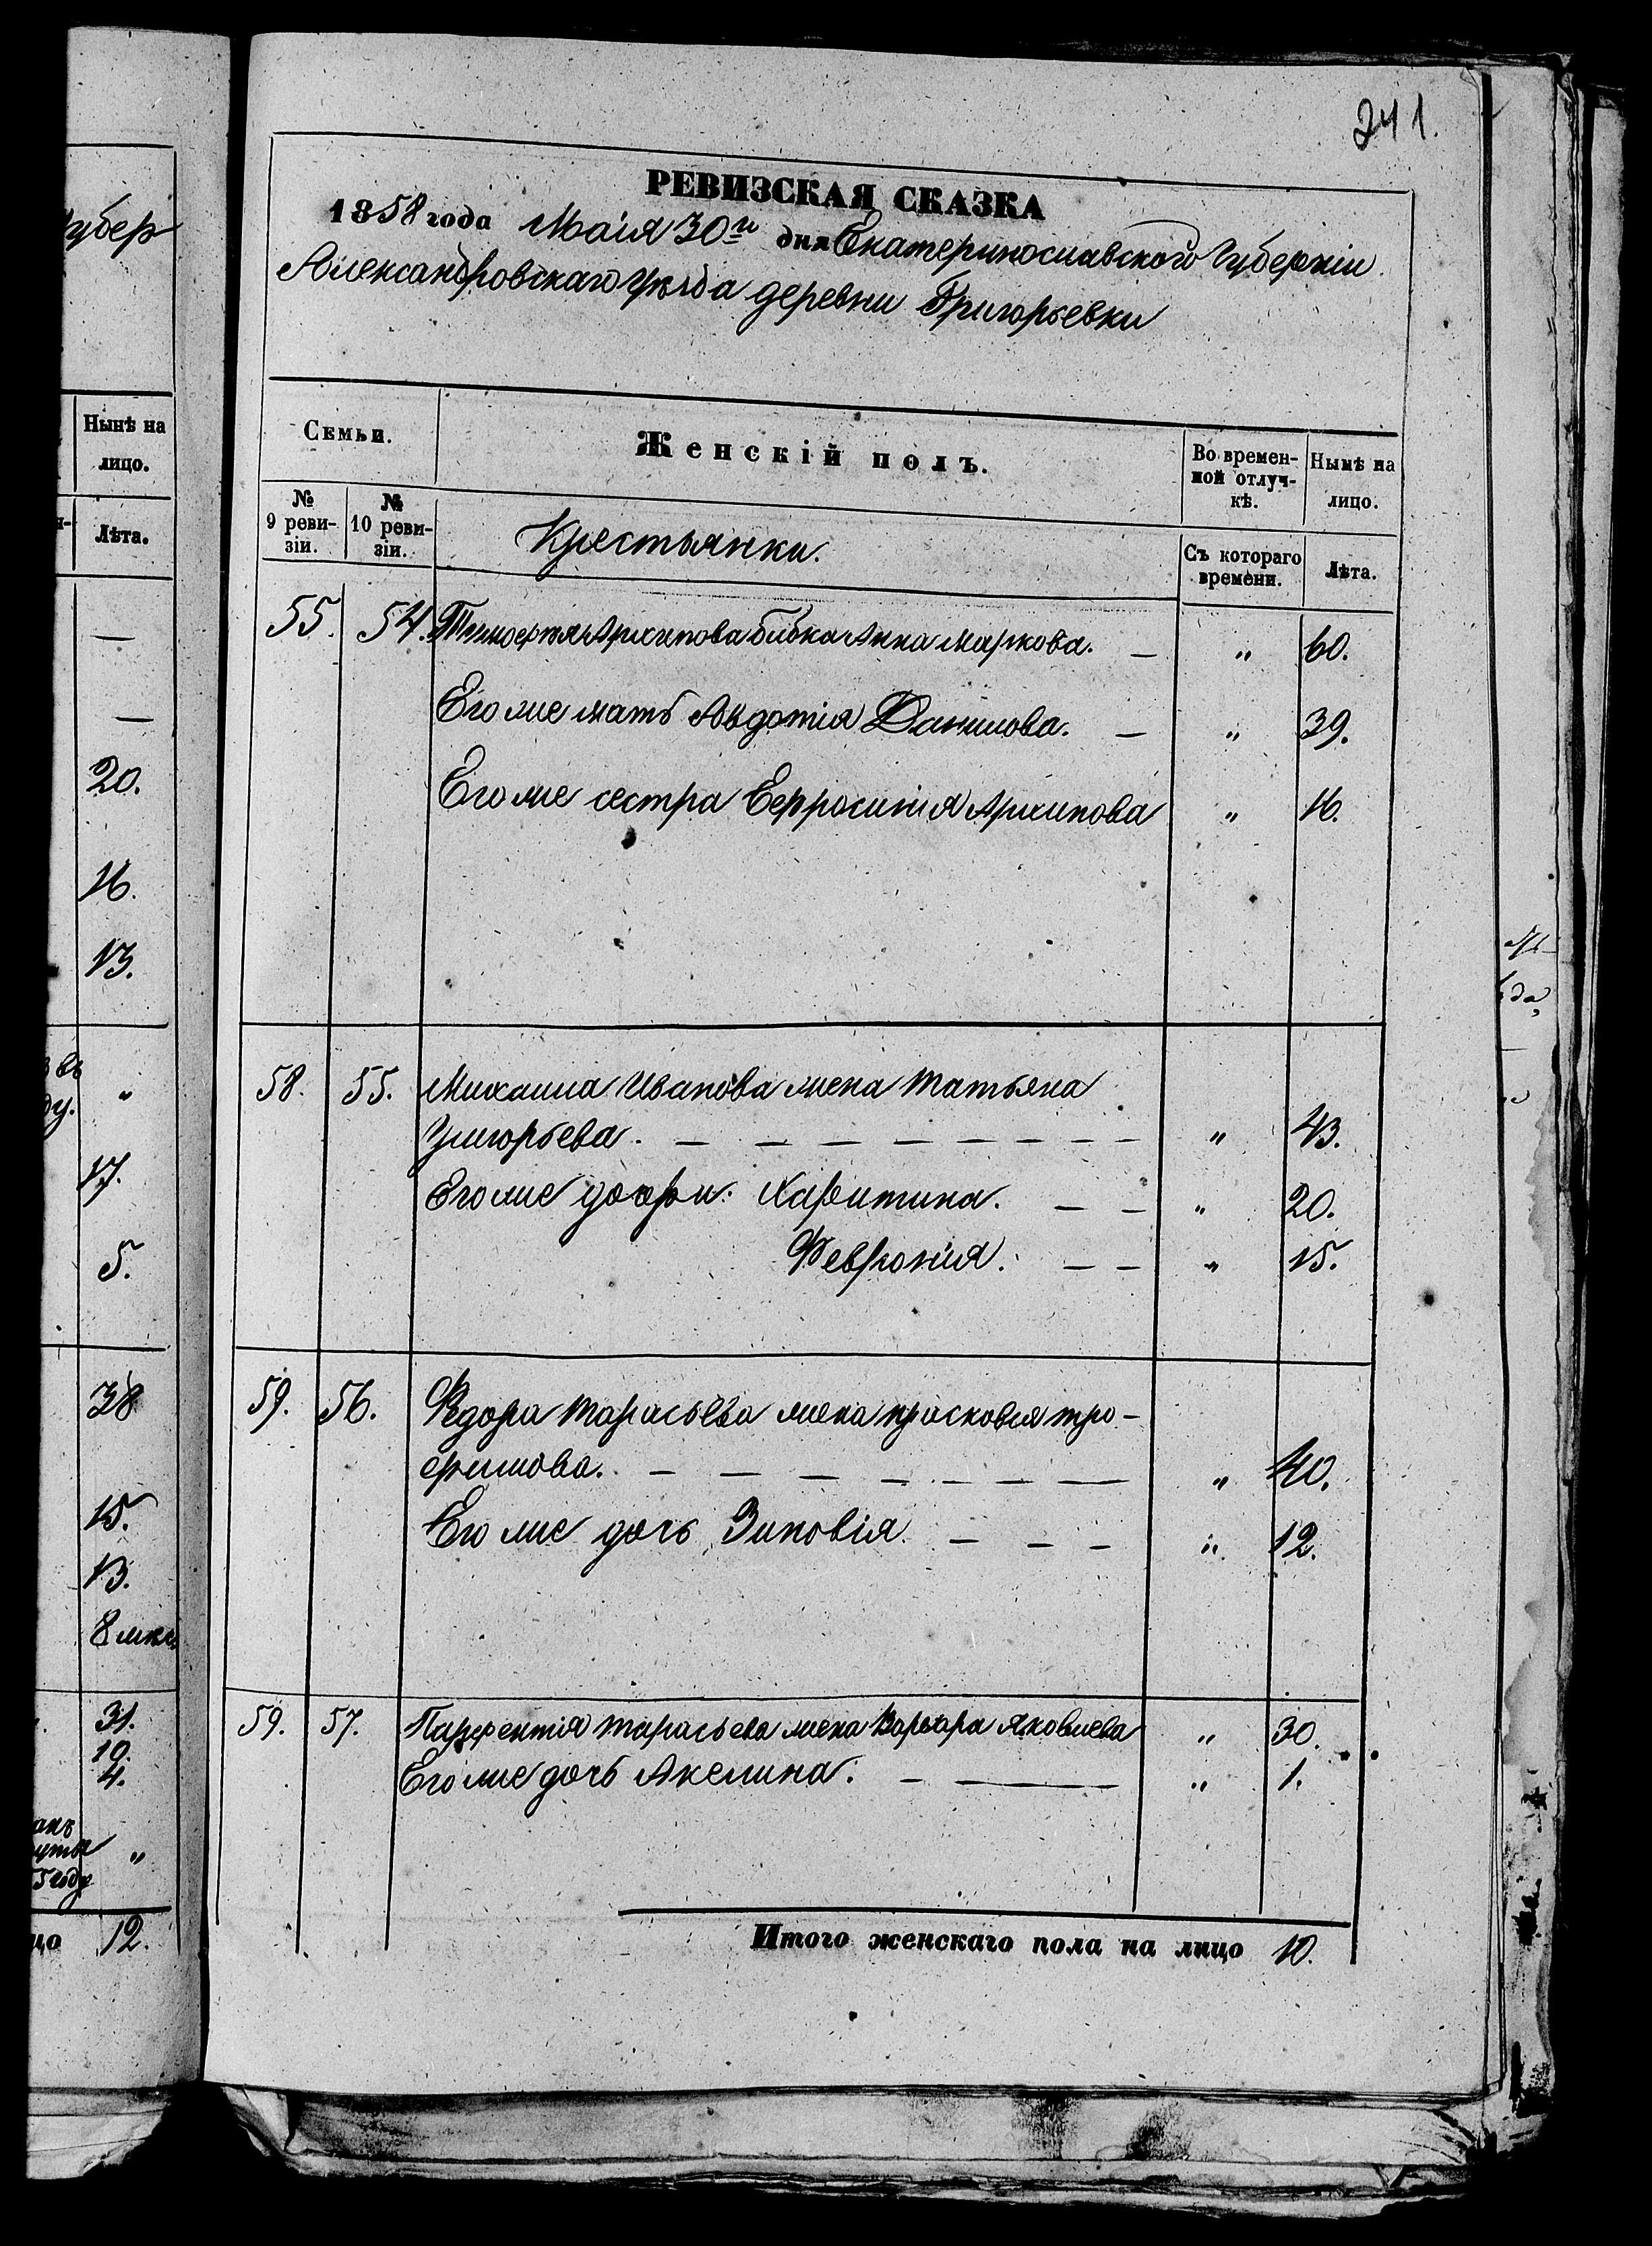 241.
РЕВИЗСКАЯ СКАЗКА
1858 года Маія 30го дня Екатеринославского Губерніи
Александровскаго Уѣзда деревни Григорьевки
Семьи.
Женскій полъ.
Во времен-
ной отлуч-
кѣ.
Нынѣ на
лицо.
№
9 реви-
зіи.
№
10 реви-
зіи.
Крестьянки.
Съ котораго
времени.
Лѣта.
55. 54. Тимофѣя Архипова бабка Анна Маркова. — " 60.
Его же мать Авдотія Данилова. — " 39.
Его же сестра Ефросинія Архипова " 16.
58. 55. Михаила Иванова жена Татьяна
Григорьева. — — — — — — — — " 43.
Его же дочри: Харитина. — — " 20.
Феврония. — — " 15.
59. 56. Федора Тарасьева жена прасковья тро-
фимова. — — — — — — — " 40.
Его же дочь Зиновія. — — — " 12.
59. 57. Парфентія Тарасьева жена Варвара Яковлева " 30.
Его же дочь Акелина. — — " 1.
Итого женскаго пола на лицо 10.
Губер
Нынѣ на
лицо.
Лѣта.
—
—
20.
16.
13.
"
17.
5.
38
15.
13.
8 мѣс.
31.
10.
4.
"
12.